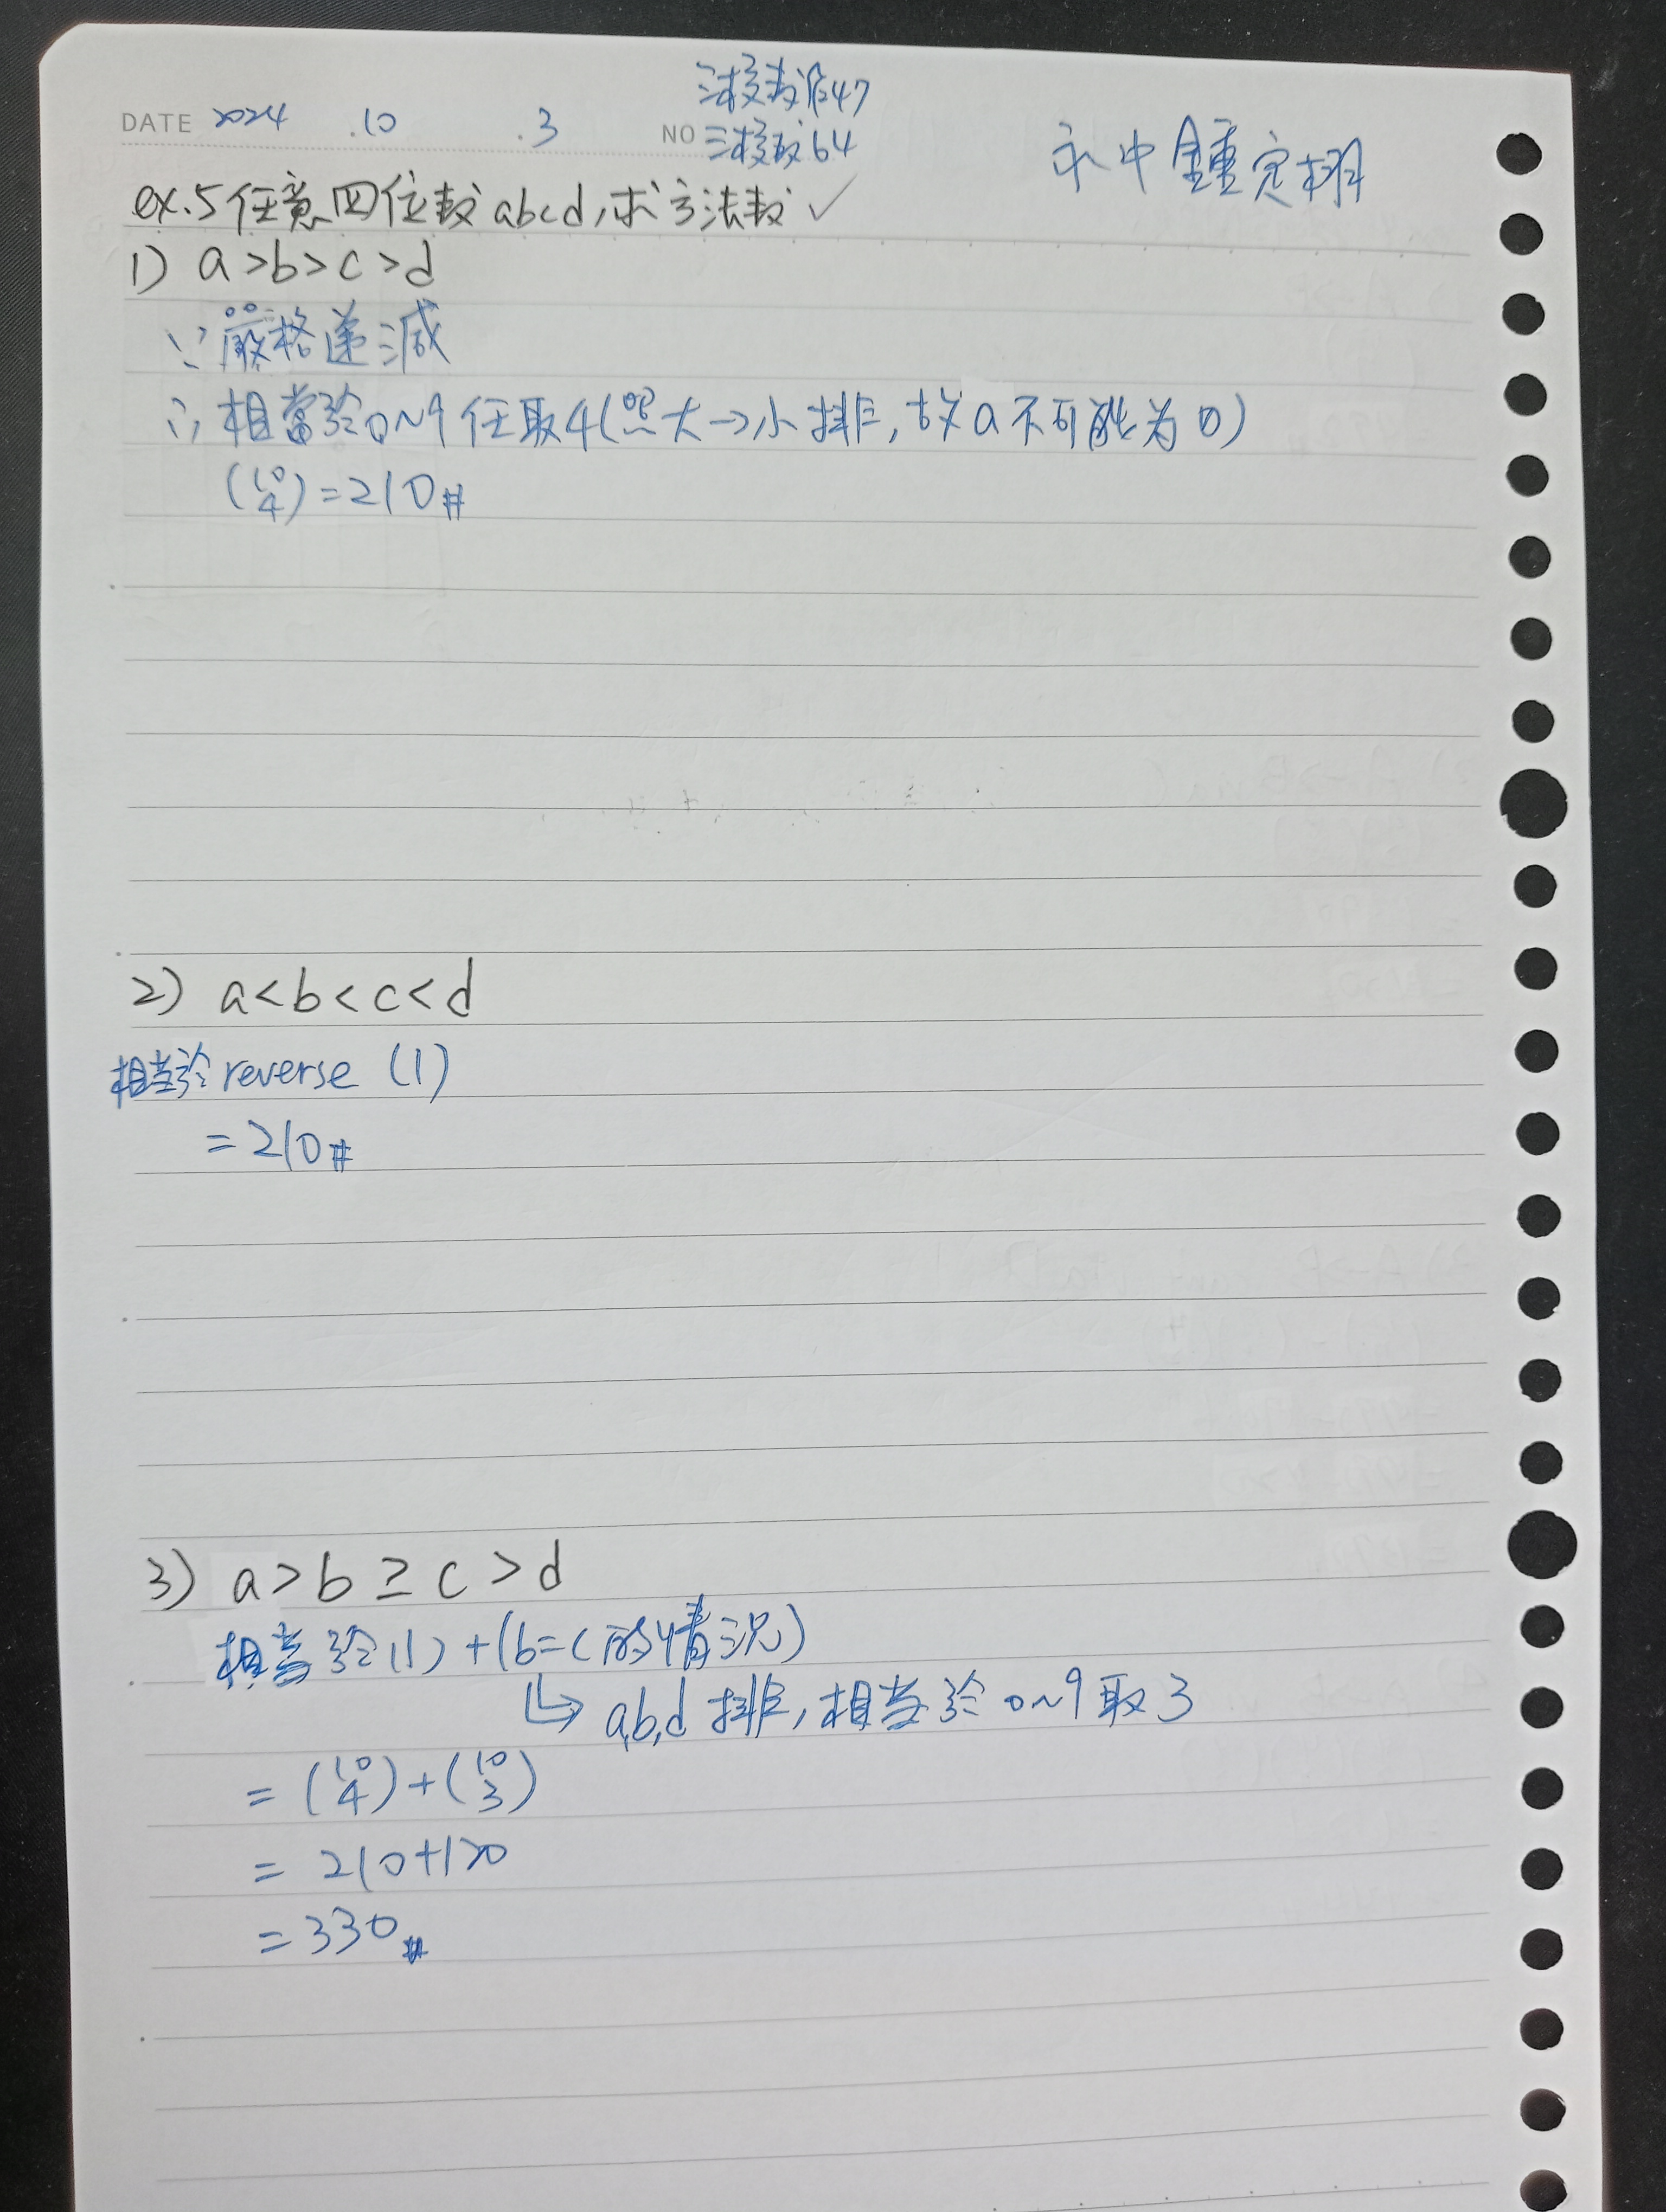 DATE 2024 .10 .3
NO
三接教准47
三接教64
永中 鍾定栩
ex.5 任意四位数 abcd, 求方法数 ✓
1) a>b>c>d
∵嚴格遞減
∴相當於0~9任取4(照大→小排,故a不可能为0)
(10 4)=210#
2) a<b<c<d
相当於reverse (1)
=210#
3) a>b≥c>d
相当於(1)+(b=c的情況)
↳ a,b,d 排,相当於0~9取3
=(10 4)+(10 3)
=210+120
=330#